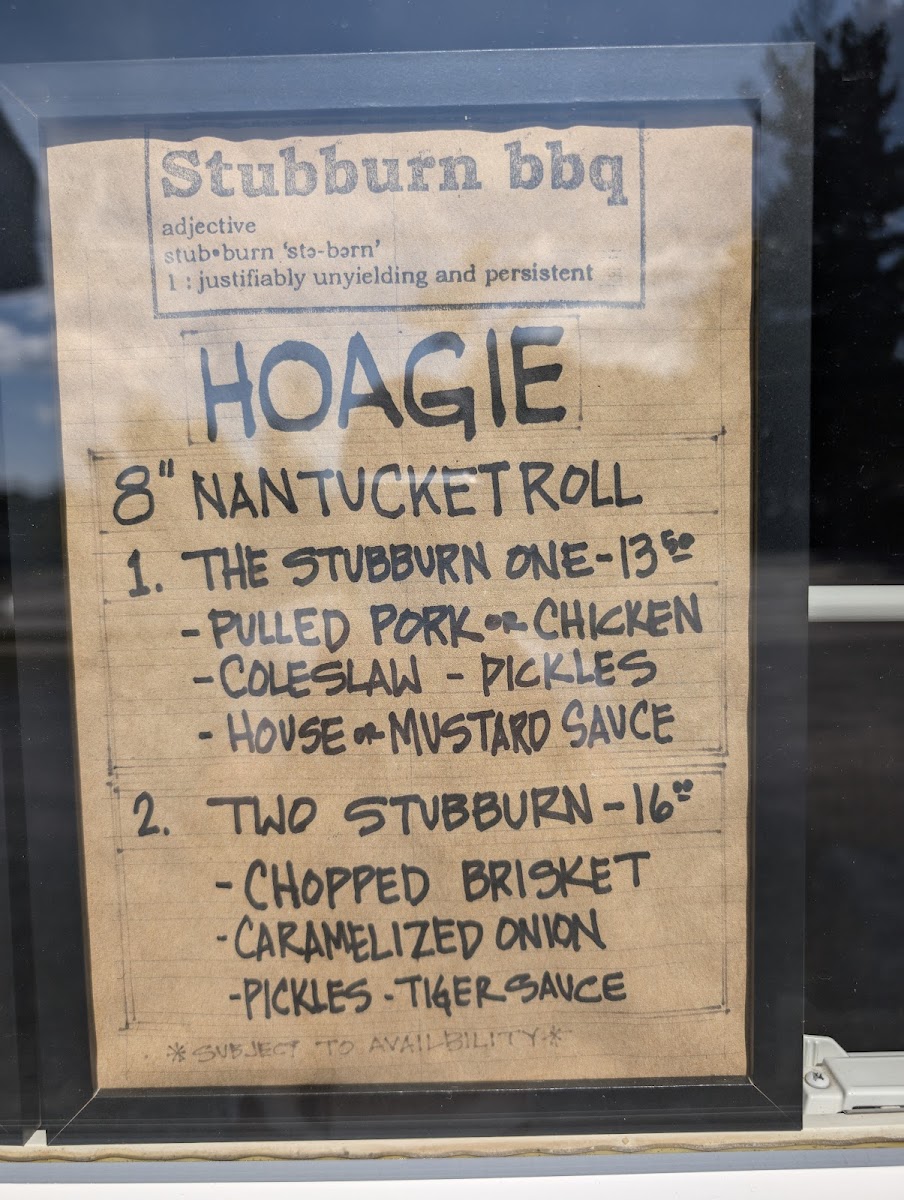 Stubburn bbq
adjective
stub•burn ‘stə-bərn’
1 : justifiably unyielding and persistent
HOAGIE
8" NANTUCKET ROLL
1. THE STUBBURN ONE - 13 50
- PULLED PORK OR CHICKEN
- COLESLAW - PICKLES
- HOUSE OR MUSTARD SAUCE
2. TWO STUBBURN - 16 00
- CHOPPED BRISKET
- CARAMELIZED ONION
- PICKLES - TIGER SAUCE
* SUBJECT TO AVAILBILITY *